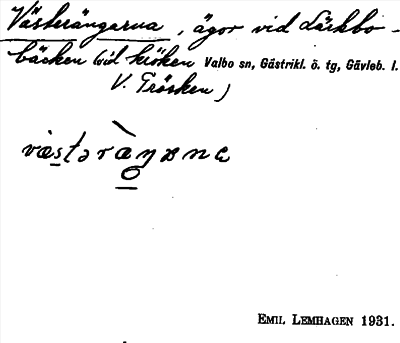 Västerängarna, ägor vid Lärkbo-
bäcken (vid kröken Valbo sn, Gästrikl. ö. tg, Gävleb. l.
V. Trösken)
væstəràŋɑnɑ
EMIL LEMHAGEN 1931.